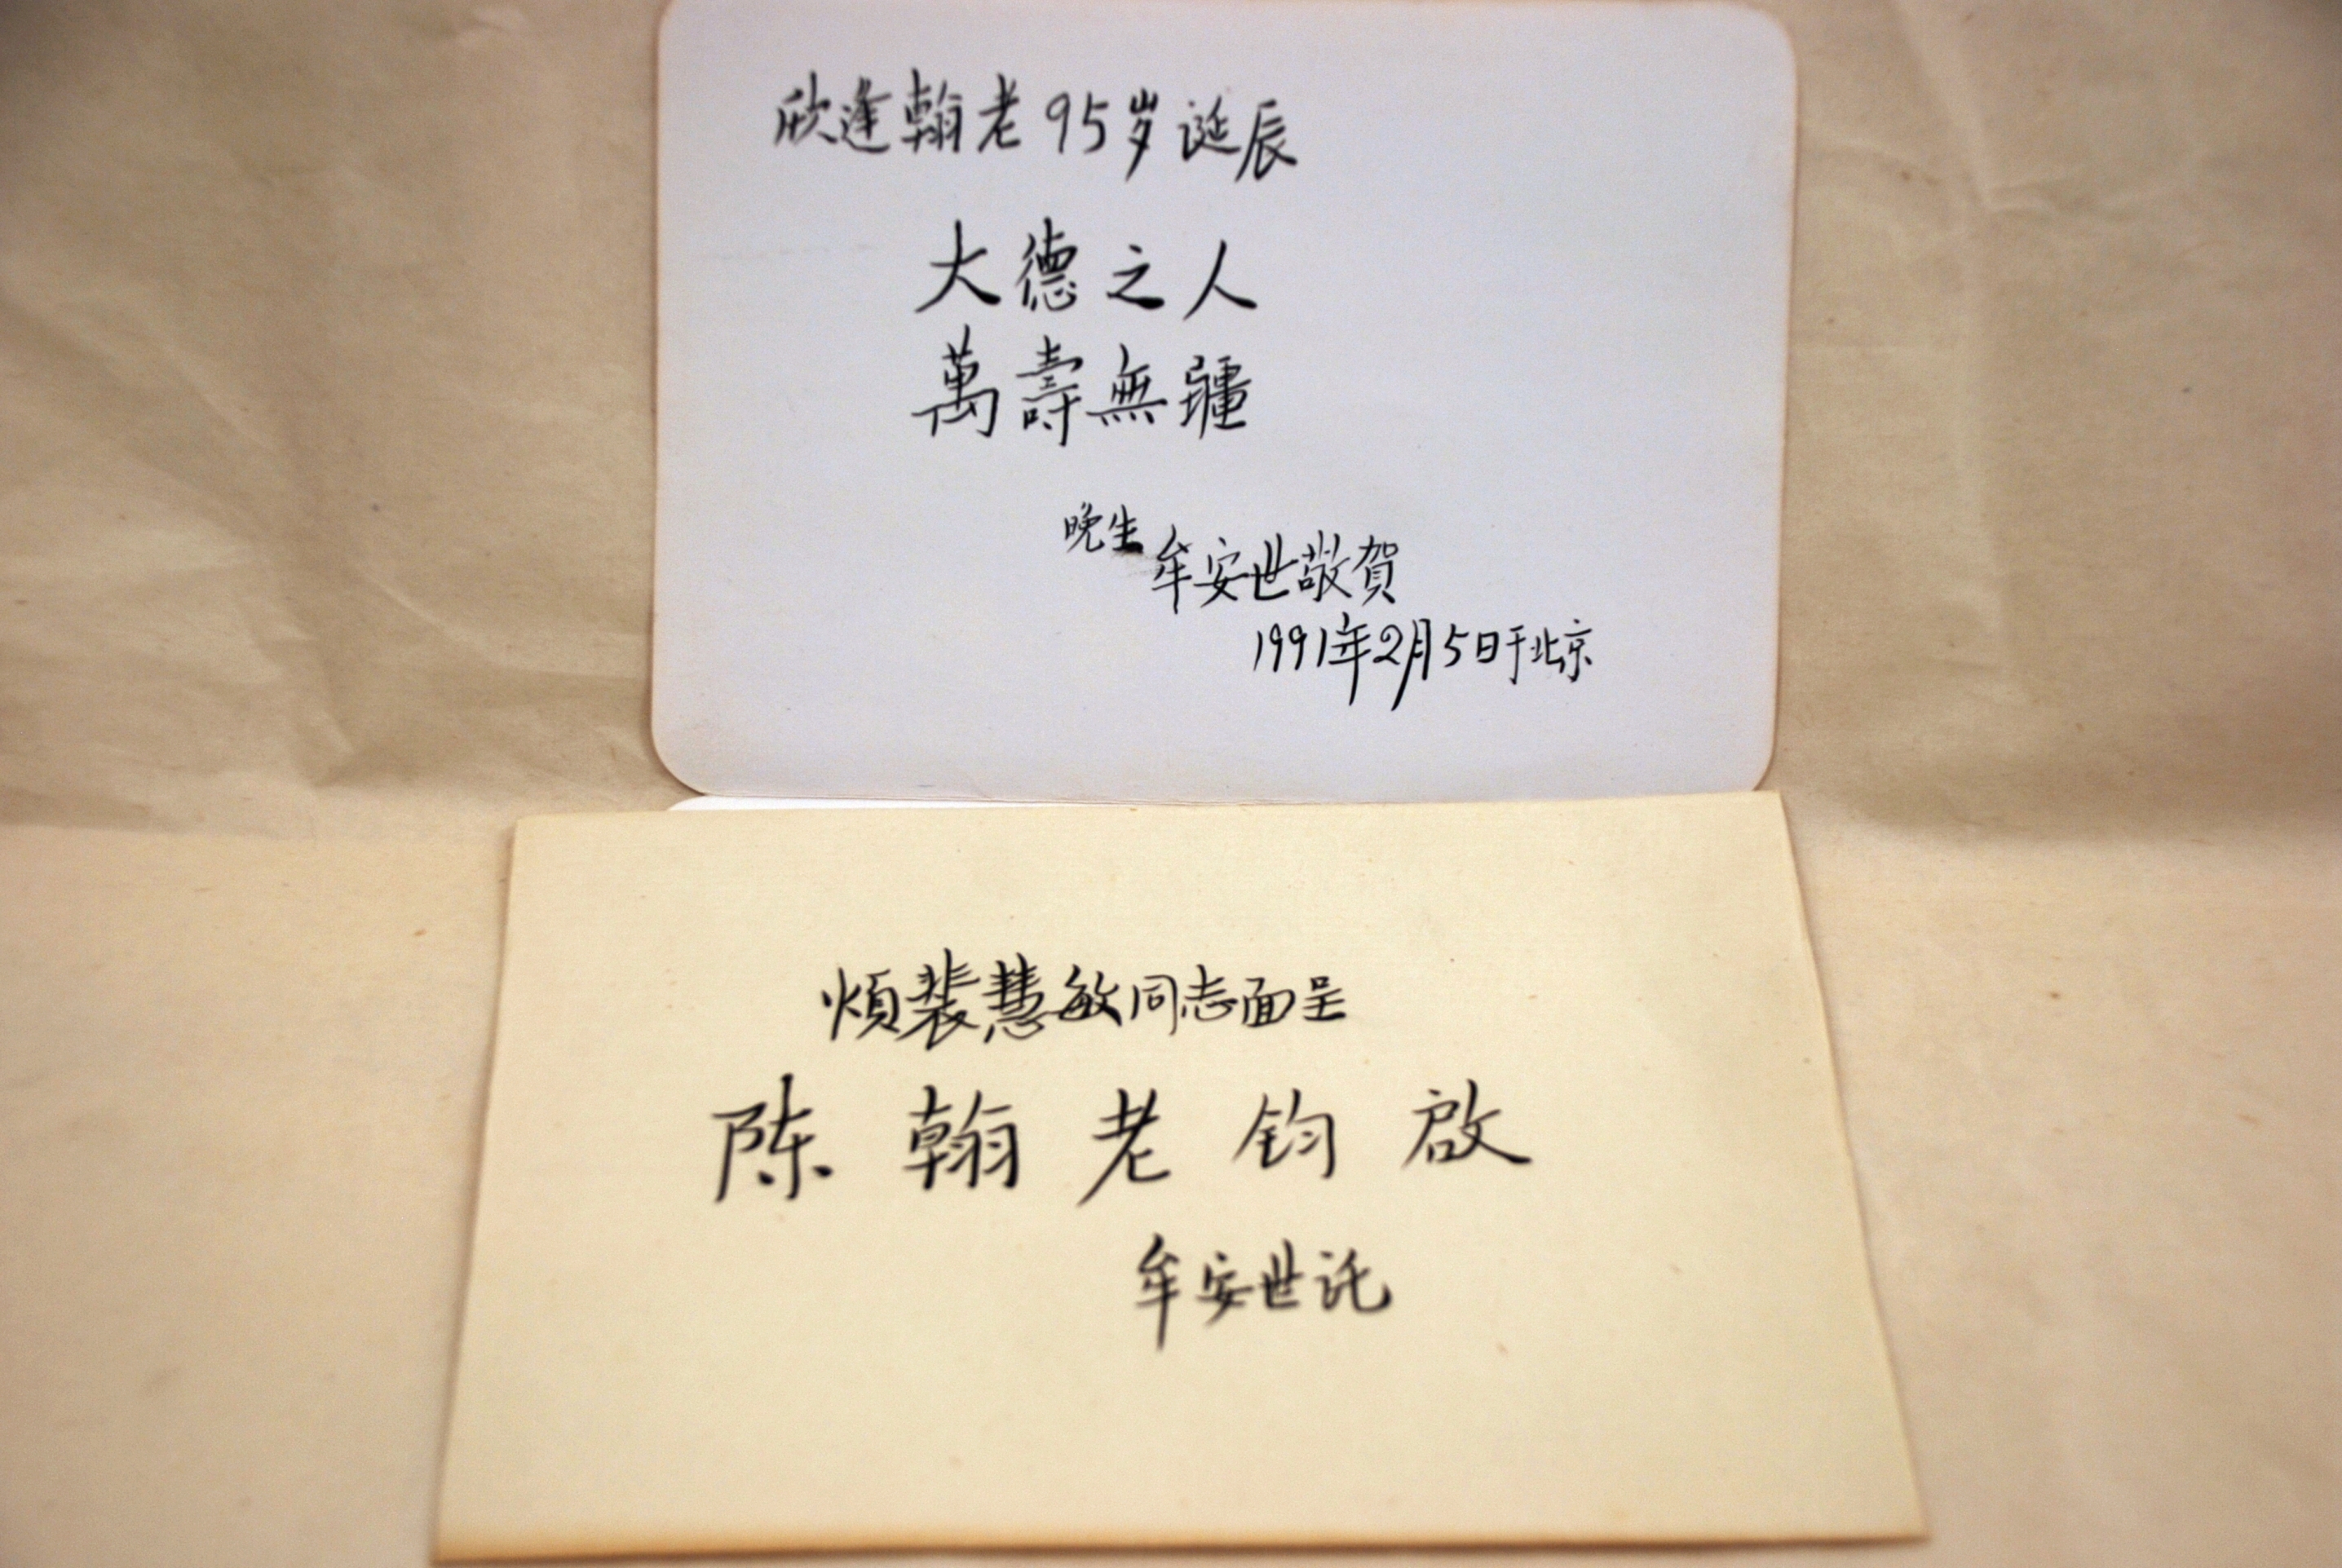 欣逢翰老95岁诞辰
大德之人
萬壽無疆
晚生
牟安世敬賀
1991年2月5日于北京
烦裴慧敏同志面呈
陈翰老钧啟
牟安世託